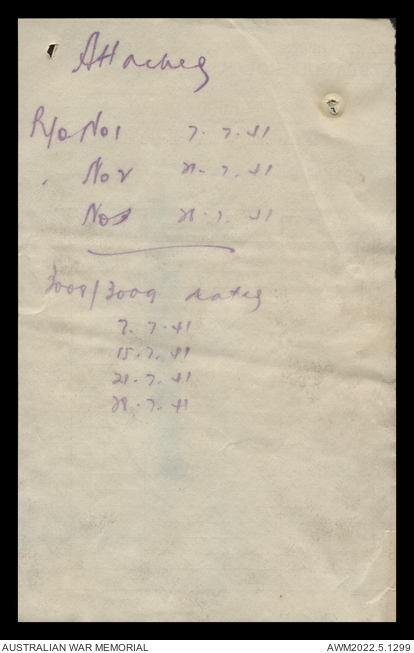 Attached
R/O No1 7.7.41
" No2 21.7.41
No3 28.7.41
3008/3009 dated
7.7.41
15.7.41
21.7.41
28.7.41
AUSTRALIAN WAR MEMORIAL
AWM2022.5.1299